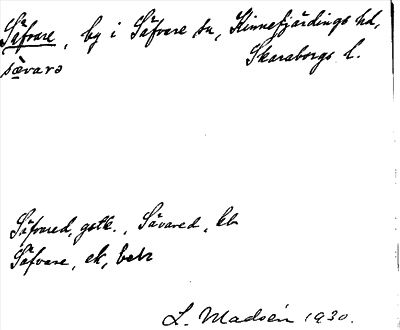 Säfvare, by i Säfvare sn, Kinnefjärdings hd,
sävarə Skaraborgs l.
Säfvared, gstk., Sävared, kb
Säfvare, ek, bebr
L. Madsén 1930.